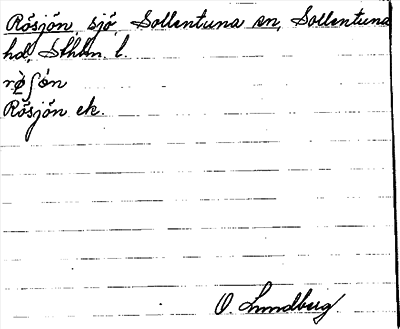 Rösjön, sjö, Sollentuna sn, Sollentuna
hd, Sthlm. l.
Rösjön ek.
O. Lundberg